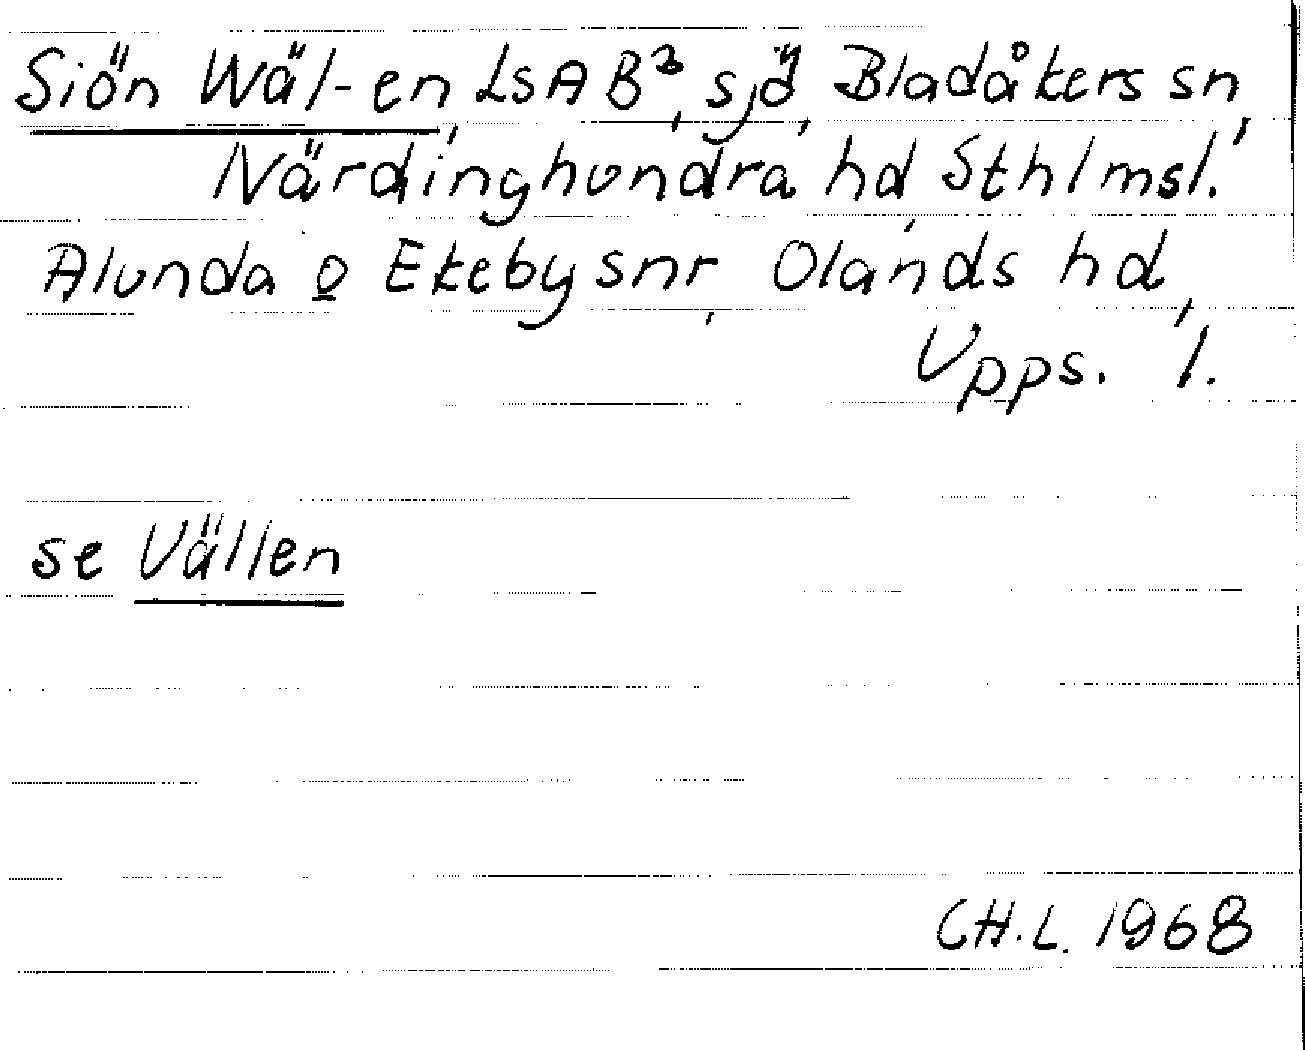 Siön Wäl-en, LsA B², sjö, Bladåkers sn,
Närdinghundra hd, Sthlmsl.
Alunda o Ekeby snr, Olands hd,
Upps. l.
se Vällen
CH.L. 1968